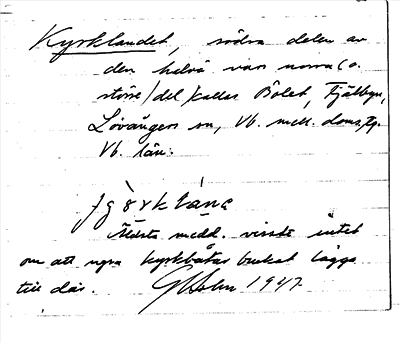 Kyrklandet, södra delen av
den halvö vars norra (o.
större) del kallas Bölet, Fjälbyn,
Lövångers sn, Vb. mell. doms., Vb. län.
Äldsta medd. visste intet
om att nya kyrkbåtar brukat lägga
till där. GHolm 1947